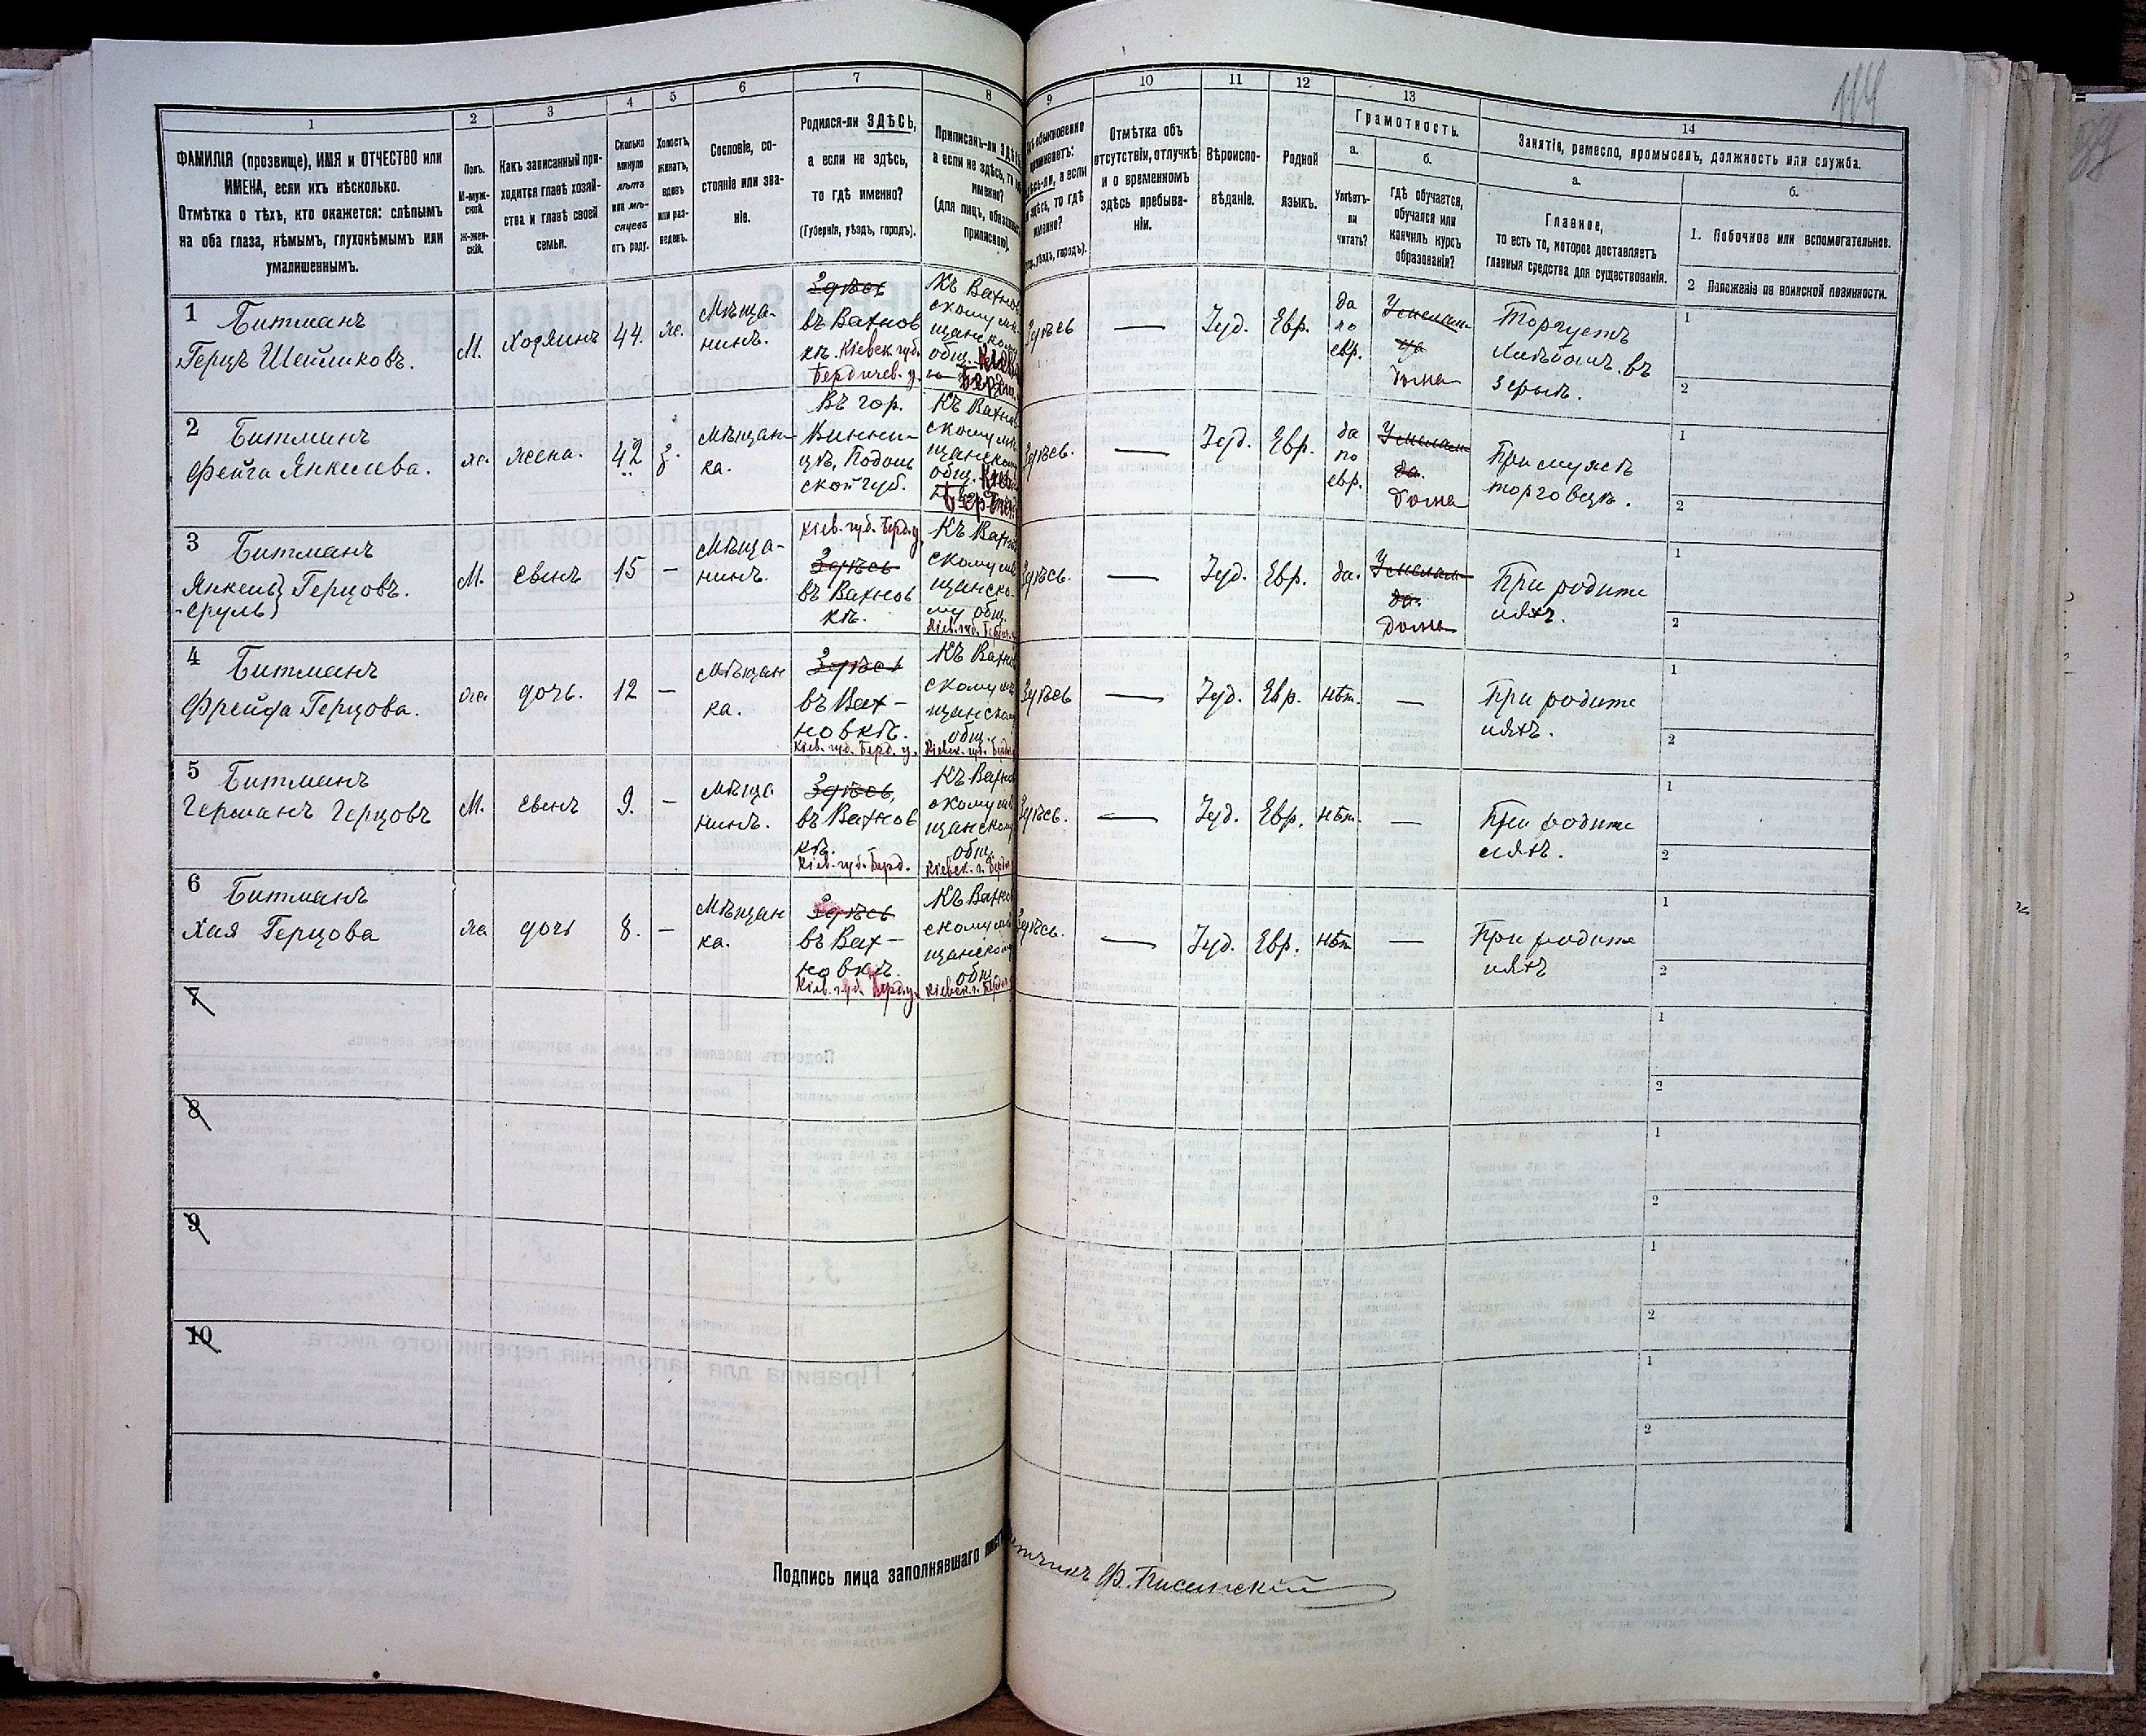 114
1
2
3
4
5
6
7
8
9
10
11
12
13
14
ФАМИЛІЯ (прозвище), ИМЯ и ОТЧЕСТВО или
ИМЕНА, если ихъ нѣсколько.
Отмѣтка о тѣхъ, кто окажется: слѣпымъ
на оба глаза, нѣмымъ, глухонѣмымъ или
умалишеннымъ.
Полъ.
М-муж-
ской.
Ж-жен-
скій.
Какъ записанный при-
ходится главѣ хозяй-
ства и главѣ своей
семьи.
Сколько
минуло
лѣтъ
или мѣ-
сяцевъ
отъ роду.
Холостъ,
женатъ,
вдовъ
или раз-
веденъ.
Сословіе, со-
стояніе или зва-
ніе.
Родился-ли ЗДѢСЬ,
а если не здѣсь,
то гдѣ именно?
(Губернія, уѣздъ, городъ).
Приписанъ-ли
а если не здѣсь, то
именно?
(для лицъ,
припискою).
обыкновенно
а если
здѣсь, то гдѣ
именно?
уѣздъ, городъ).
Отмѣтка объ
отсутствіи, отлучкѣ
и о временномъ
здѣсь пребыва-
ніи.
Вѣроиспо-
вѣданіе.
Родной
языкъ.
Грамотность.
а.
Умѣетъ-
ли
читать?
б.
гдѣ обучается,
обучался или
кончилъ курсъ
образованія?
Занятіе, ремесло, промыселъ, должность или служба.
а.
Главное,
то есть то, которое доставляетъ
главныя средства для существованія.
б.
1. Побочное или вспомогательное.
2 Положеніе по воинской повинности.
1 Битманъ
Герцъ Шейликовъ.
М.
хозяинъ
44.
ж.
Мѣща-
нинъ.
Здѣсь
въ Вахнов
кѣ. Кіевск. губ.
Бердичев. у.
Къ Вахнов
скому мѣ
щанскому
общ.
Здѣсь
—
Іуд.
Евр.
да
по
евр.
дома
Торгуетъ
хлѣбомъ въ
зернѣ.
1
2
2 Битманъ
Фейга Янкелева.
ж.
жена.
42
з.
мѣщан-
ка.
Въ гор.
Винни-
цѣ, Подоль
ской губ.
Къ Вахнов
скому мѣ
щанскому
общ.
Здѣсь.
—
Іуд.
Евр.
да
по
евр.
да.
дома
При мужѣ
торговцѣ.
1
2
3 Битманъ
Янкель} Герцовъ.
-Сруль}
М.
сынъ
15
–
Мѣща-
нинъ.
Кіев. губ. Берд. у.
Здѣсь
въ Вахнов
кѣ.
Къ Вахнов
скому мѣ
щанско-
му общ.
Здѣсь.
—
Іуд.
Евр.
да.
да.
Дома
При родите
ляхъ.
1
2
4 Битманъ
Фрейда Герцова.
ж.
дочь.
12
–
мѣщан
ка.
Здѣсь
въ Вах-
новкѣ.
Кіев. губ. Берд. у.
Къ Вахнов
скому мѣ
щанском
общ.
Здѣсь
—
Іуд.
Евр.
нѣт.
—
При родите
ляхъ.
1
2
5 Битманъ
Германъ Герцовъ
М.
сынъ
9.
–
мѣща
нинъ.
Здѣсь,
въ Вахнов
кѣ.
Кіев. губ. Берд.
Къ Вахнов
скому мѣ
щанском
общ.
Здѣсь.
—
Іуд.
Евр.
нѣт.
—
При родите
ляхъ.
1
2
6 Битманъ
Хая Герцова
жа
дочь
8.
–
Мѣщан
ка.
Здѣсь
въ Вах-
новкѣ.
Кіев. губ. Берд. у.
Къ Вахнов
скому мѣ
щанском
общ.
Здѣсь.
—
Іуд.
Евр.
нѣт
—
При родите
ляхъ
1
2
7
1
2
8
1
2
9
1
2
10
1
2
Подпись лица заполнявшаго